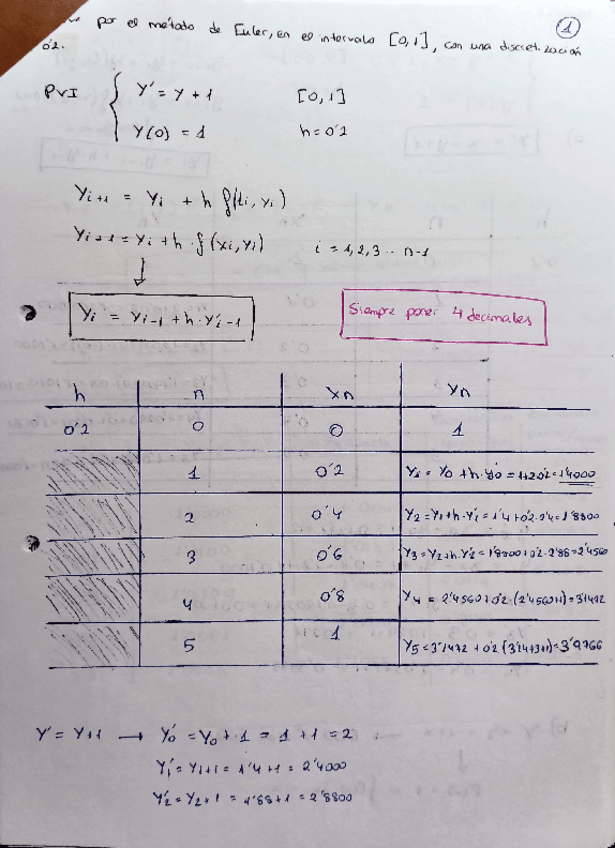 por el método de Euler, en el intervalo [0,1], con una discretización
0'2.
1
PVI { Y' = Y + 1 [0,1]
Y(0) = 1 h = 0'2
Yi+1 = Yi + h f(ti, yi)
Yi+1 = Yi + h · f(xi, yi) i = 1, 2, 3 ... n-1
Yi = Yi-1 + h · Y'i-1
Siempre poner 4 decimales
h n Xn Yn
0'2 0 0 1
1 0'2 Y1 = Y0 + h · Y'0 = 1+2·0'2 = 1'4000
2 0'4 Y2 = Y1 + h · Y'1 = 1'4 + 0'2 · 2'4 = 1'8800
3 0'6 Y3 = Y2 + h · Y'2 = 1'8800 + 0'2 · 2'88 = 2'4560
4 0'8 Y4 = 2'4560 + 0'2 · (2'4560+1) = 3'1472
5 1 Y5 = 3'1472 + 0'2 = 3'9766
Y' = Y+1 → Y'0 = Y0 + 1 = 1 + 1 = 2
Y'1 = Y1+1 = 1'4 + 1 = 2'4000
Y'2 = Y2 + 1 = 1'88 + 1 = 2'8800